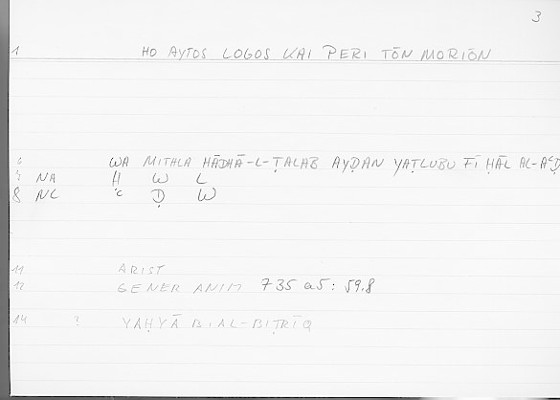 3
1 HO AYTOS LOGOS KAI PERI TŌN MORIŌN
6 WA MITHLA HĀDHĀ-L-ṬALAB AYḌAN YAṬLUBU FĪ ḤĀL AL-AᶜḌ
NA Ḥ W L
8 NC ᶜ Ḍ W
11 ARIST
12 GENER ANIM 735 a5 : 59.8
14 ? YAḤYĀ B. AL-BIṬRĪQ